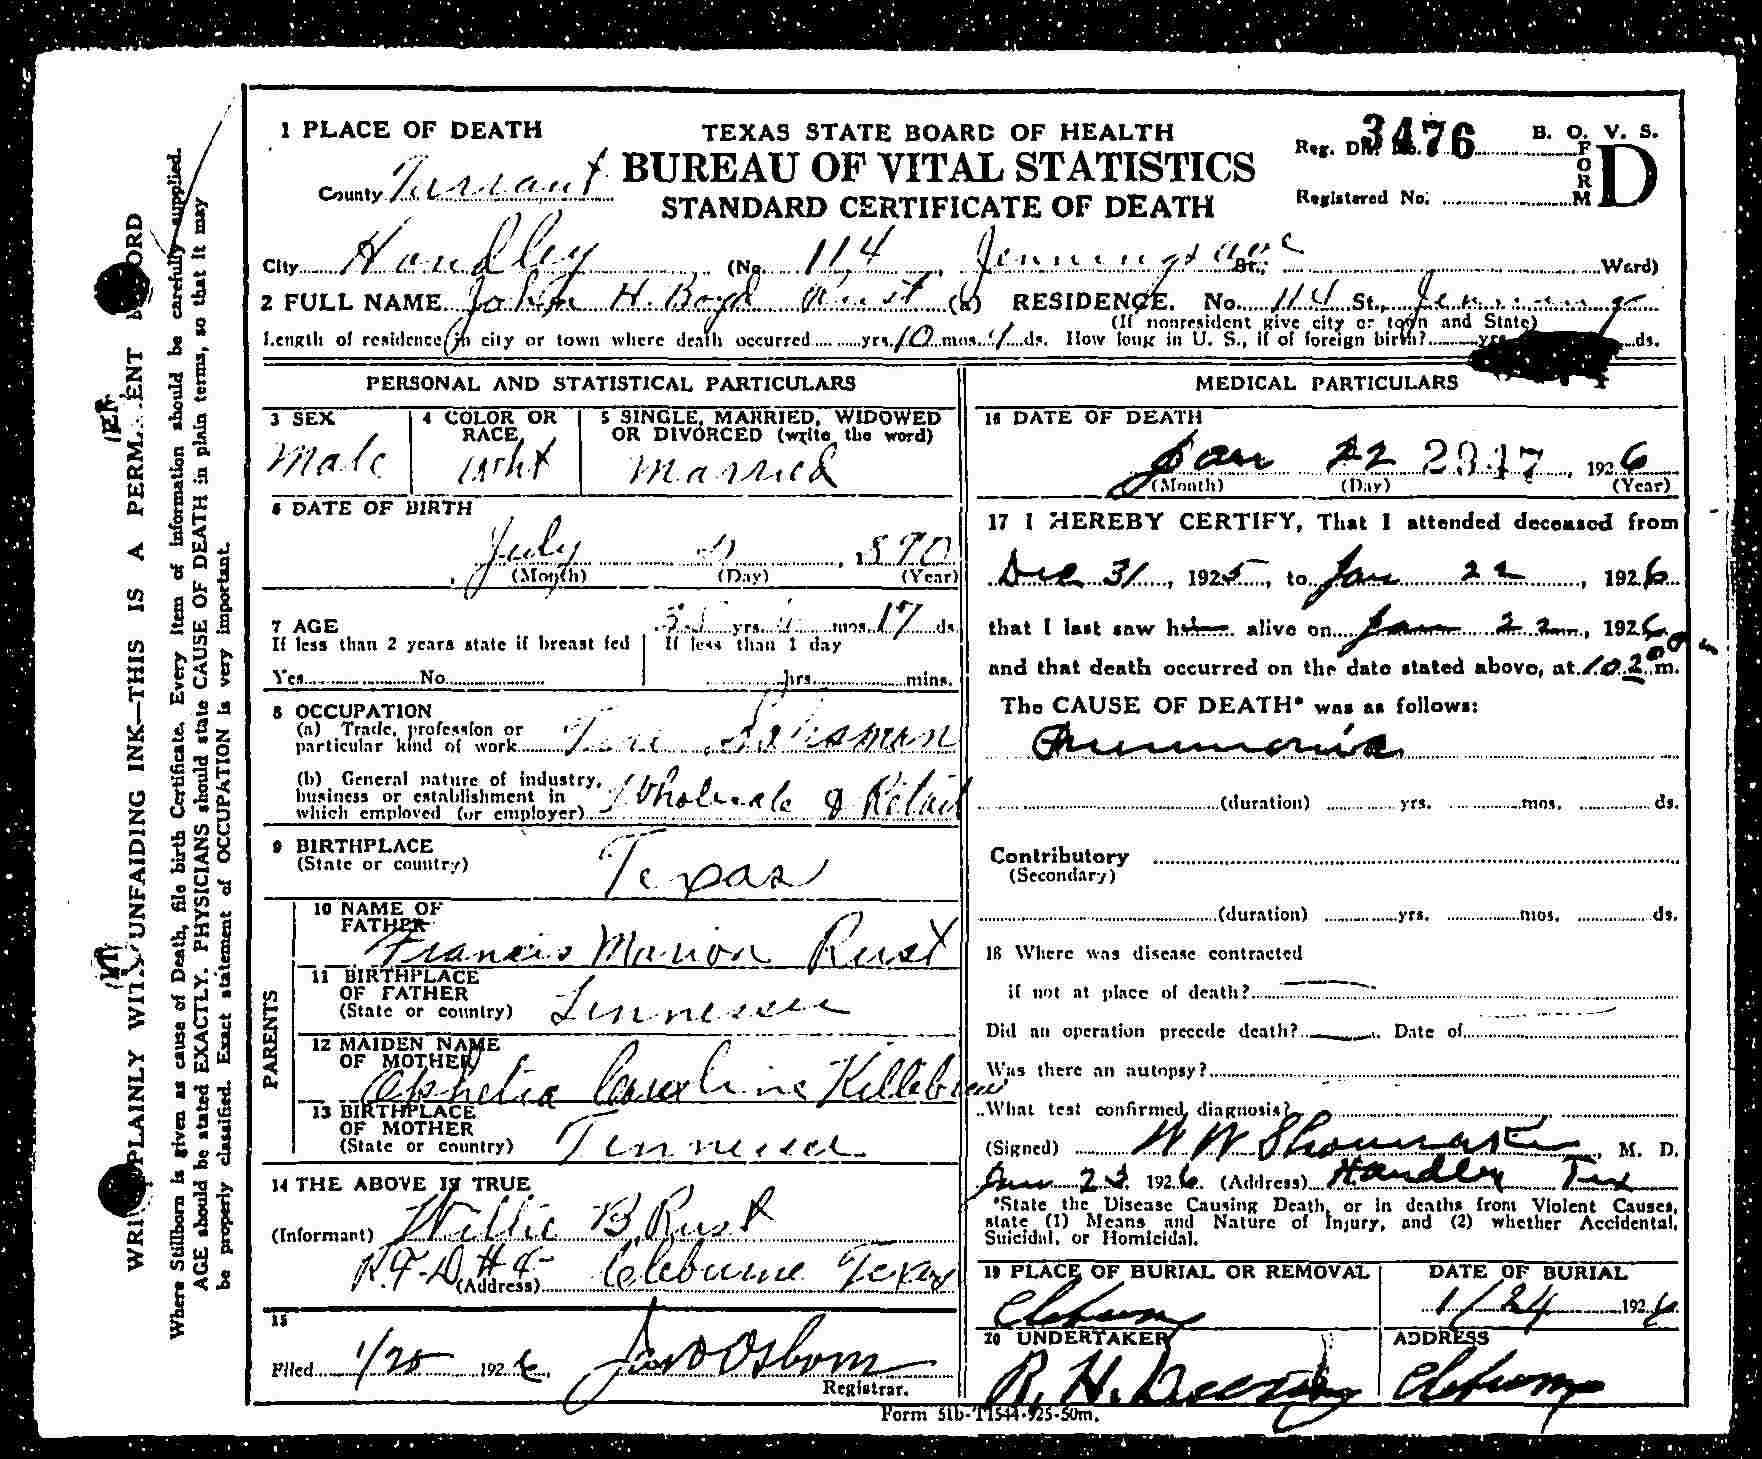 1 PLACE OF DEATH
TEXAS STATE BOARD OF HEALTH
BUREAU OF VITAL STATISTICS
STANDARD CERTIFICATE OF DEATH
Reg. Dis. No. 3476
B. O. V. S.
FORM D
County Tarrant
Registered No.
City Handley (No. 114 Jennings ave St.; Ward)
2 FULL NAME John H. Boyd Rust (a) RESIDENCE. No. 114 St., Jennings
(If nonresident give city or town and State)
Length of residence in city or town where death occurred yrs. 10 mos. ds. How long in U. S., if of foreign birth? yrs. ds.
PERSONAL AND STATISTICAL PARTICULARS
3 SEX
Male
4 COLOR OR RACE
Wht
5 SINGLE, MARRIED, WIDOWED OR DIVORCED (write the word)
Married
6 DATE OF BIRTH
July 1890
(Month) (Day) (Year)
7 AGE yrs. mos. 17 ds.
If less than 2 years state if breast fed
Yes No
If less than 1 day
hrs. mins.
8 OCCUPATION
(a) Trade, profession or
particular kind of work Tire Salesman
(b) General nature of industry,
business or establishment in
which employed (or employer) Wholesale & Retail
9 BIRTHPLACE
(State or country) Texas
PARENTS
10 NAME OF
FATHER Francis Marion Rust
11 BIRTHPLACE
OF FATHER
(State or country) Tennessee
12 MAIDEN NAME
OF MOTHER Ophelia Caroline Killebrew
13 BIRTHPLACE
OF MOTHER
(State or country) Tennessee
14 THE ABOVE IS TRUE
(Informant) Willie B. Rust
(Address) R.F.D # Cleburne Texas
15
Filed 1/25 1926 Osborn
Registrar.
MEDICAL PARTICULARS
16 DATE OF DEATH
Jan 22 1926
(Month) (Day) (Year)
17 I HEREBY CERTIFY, That I attended deceased from
Dec 31, 1925, to Jan 22, 1926
that I last saw him alive on Jan 22, 1926
and that death occurred on the date stated above, at m.
The CAUSE OF DEATH* was as follows:
Pneumonia
(duration) yrs. mos. ds.
Contributory
(Secondary)
(duration) yrs. mos. ds.
18 Where was disease contracted
if not at place of death?
Did an operation precede death? Date of
Was there an autopsy?
What test confirmed diagnosis?
(Signed) W W Shoemaker, M. D.
Jan 23 1926 (Address) Handley Tex
*State the Disease Causing Death, or in deaths from Violent Causes,
state (1) Means and Nature of Injury, and (2) whether Accidental,
Suicidal, or Homicidal.
19 PLACE OF BURIAL OR REMOVAL
Cleburne
DATE OF BURIAL
1/24 1926
20 UNDERTAKER
R. H.
ADDRESS
Cleburne
Form 51b-T1544-925-50m.
WRITE PLAINLY WITH UNFAIDING INK—THIS IS A PERMANENT RECORD
Where Stillborn is given as cause of Death, file birth Certificate. Every item of information should be carefully supplied.
AGE should be stated EXACTLY. PHYSICIANS should state CAUSE OF DEATH in plain terms, so that it may
be properly classified. Exact statement of OCCUPATION is very important.